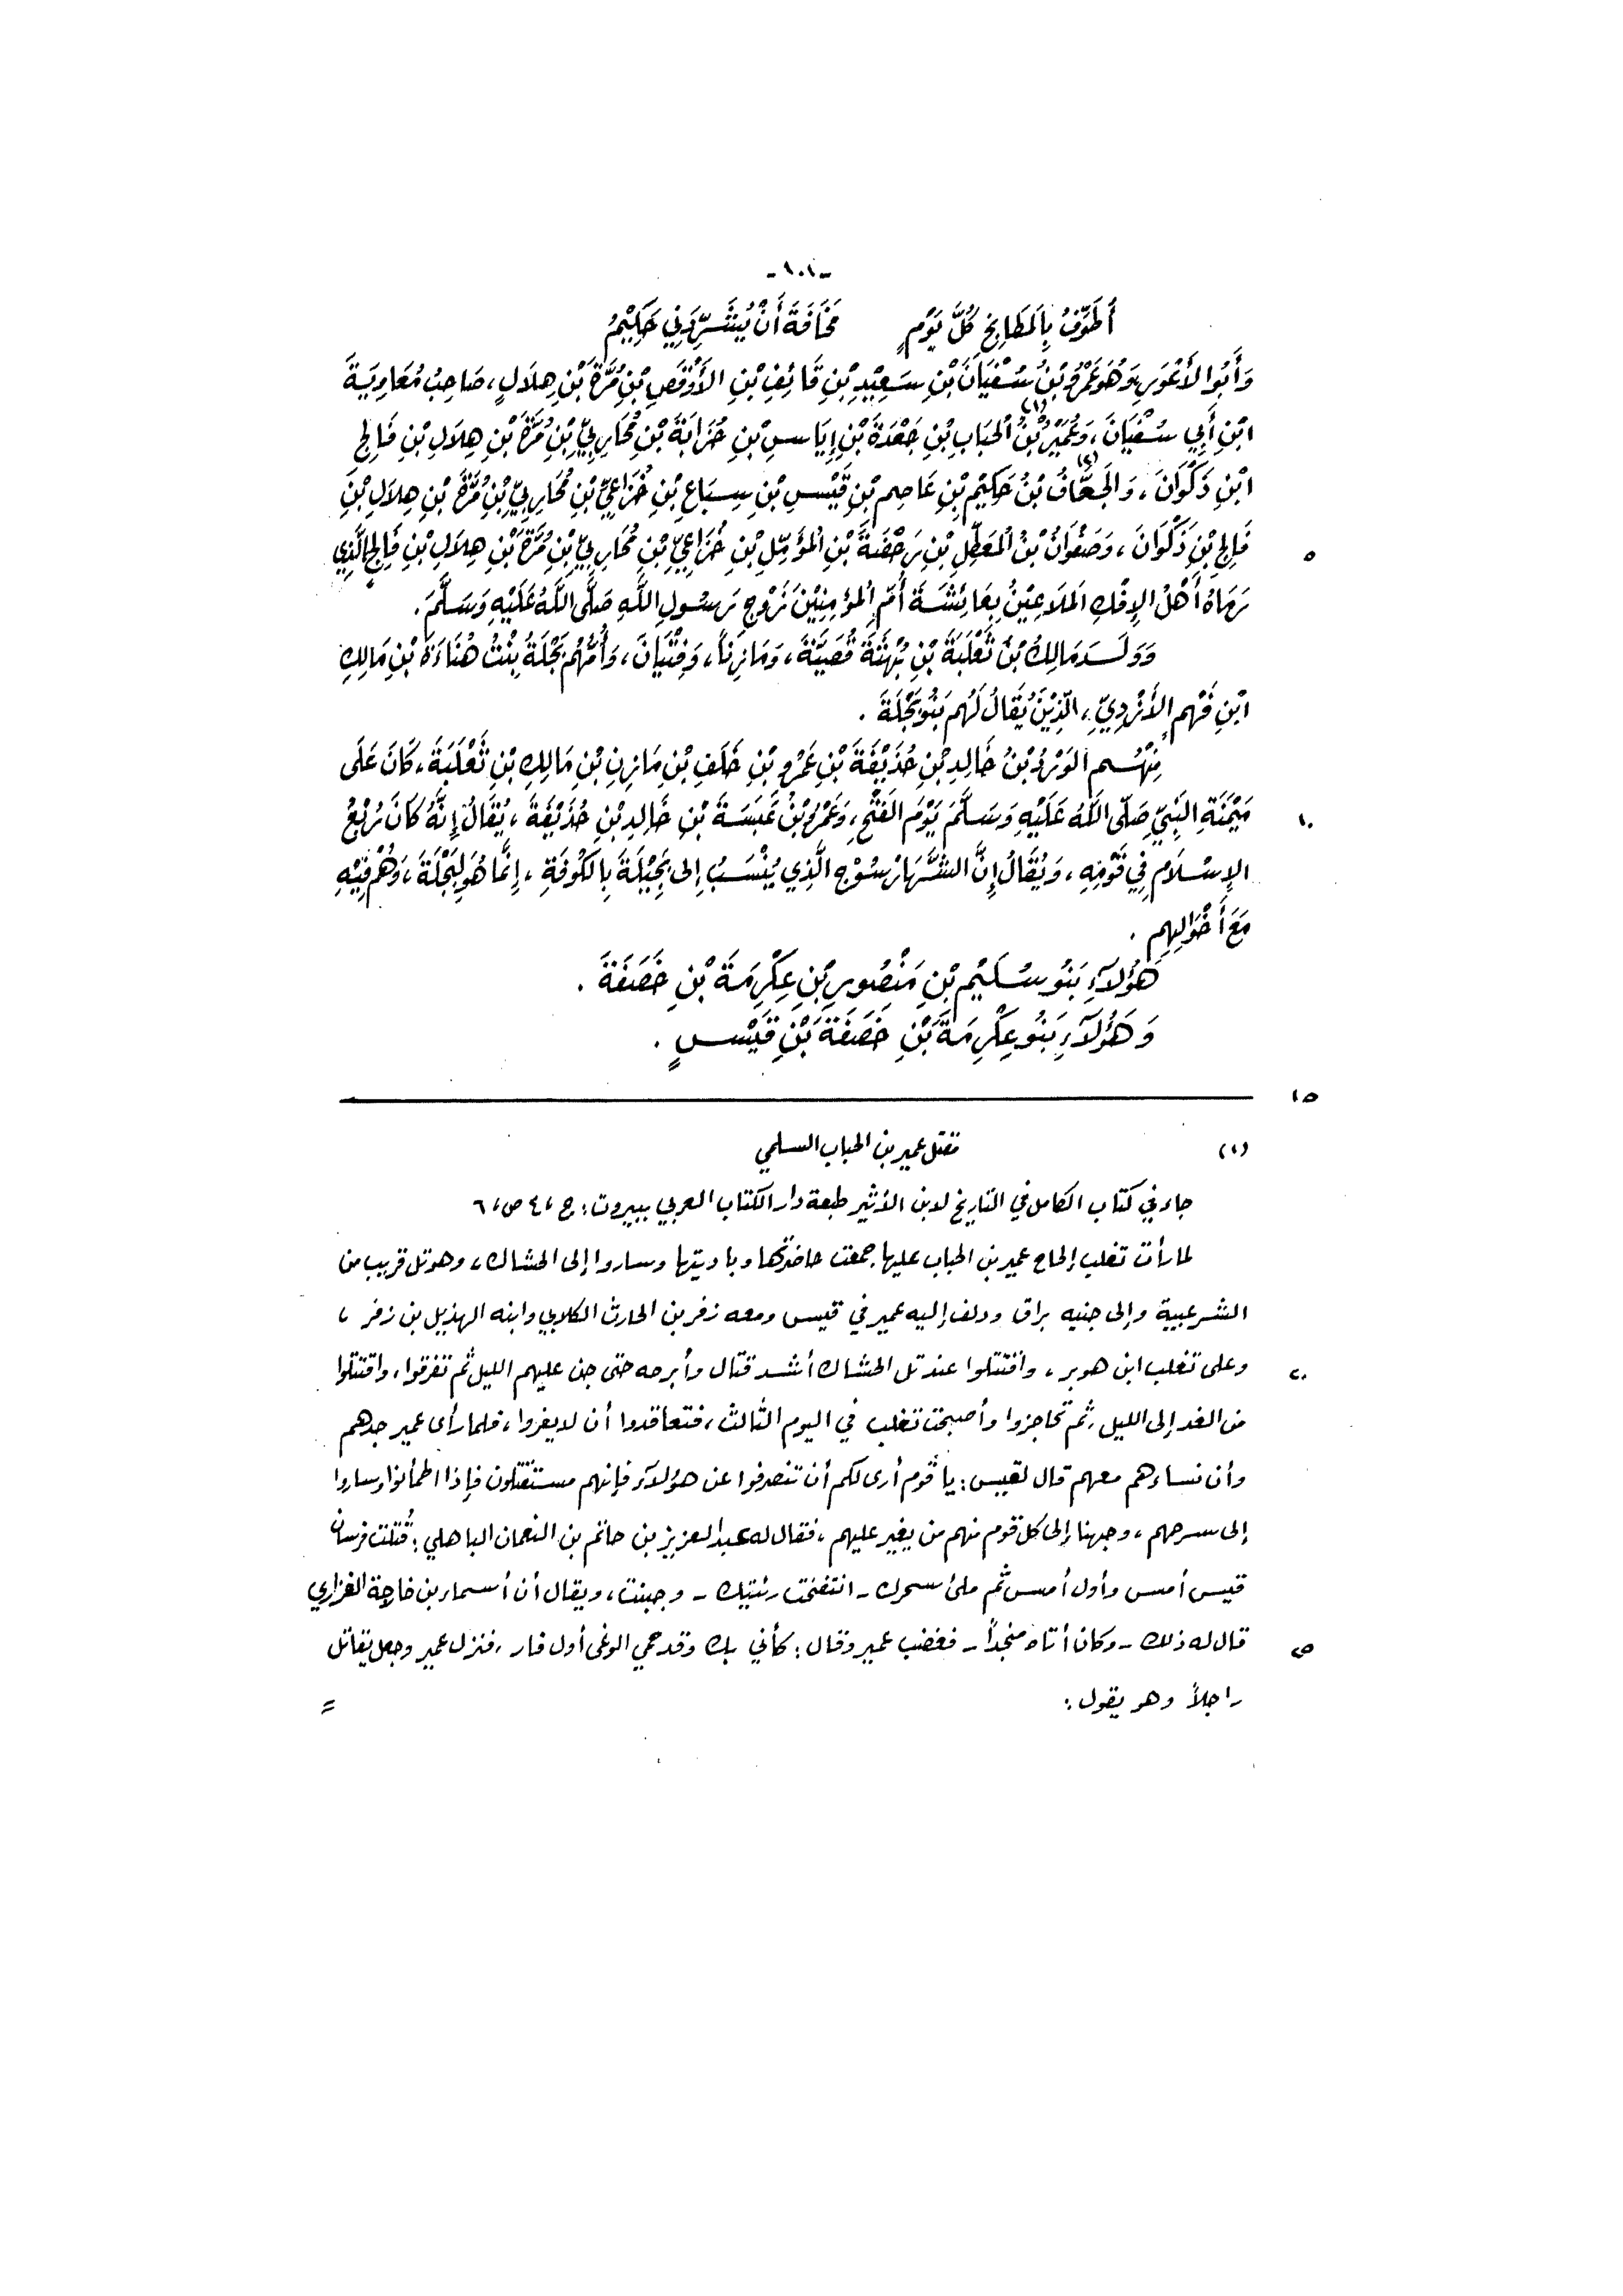 -١٠١-
أُطَوِّفُ بِالمَطَابِخِ كُلَّ يَوْمٍ مَخَافَةَ أَنْ يُشَرِّدَنِي حَكِيْمُ
وَأَبُو الأَعْوَرِ وَهُوَ عَمْرُو بْنُ سُفْيَانَ بْنِ سَعِيْدِ بْنِ قَائِفِ بْنِ الأَوْقَصِ بْنِ مُرَّةَ بْنِ هِلَالٍ، صَاحِبُ مُعَاوِيَةَ
ابْنِ أَبِي سُفْيَانَ، وَعُمَيْرُ(١) بْنُ الحُبَابِ بْنِ جَعْدَةَ بْنِ إِيَاسِ بْنِ حُزَابَةَ بْنِ مُحَارِبِيِّ بْنِ مُرَّةَ بْنِ هِلَالِ بْنِ فَالِجِ
ابْنِ ذَكْوَانَ، وَالجَحَّافُ(٢) بْنُ حَكِيْمِ بْنِ عَاصِمِ بْنِ قَيْسِ بْنِ سِبَاعِ بْنِ خُزَاعِيِّ بْنِ مُحَارِبِيِّ بْنِ مُرَّةَ بْنِ هِلَالِ بْنِ
فَالِجِ بْنِ ذَكْوَانَ، وَصَفْوَانُ بْنُ المُعَطَّلِ بْنِ رَحْضَةَ بْنِ المُؤَمِّلِ بْنِ خُزَاعِيِّ بْنِ مُحَارِبِيِّ بْنِ مُرَّةَ بْنِ هِلَالِ بْنِ فَالِجٍ الَّذِي
٥
رَمَاهُ أَهْلُ الإِفْكِ المَلَاعِيْنُ بِعَائِشَةَ أُمِّ المُؤْمِنِيْنَ زَوْجِ رَسُولِ اللَّهِ صَلَّى اللَّهُ عَلَيْهِ وَسَلَّمَ.
وَوَلَدَ مَالِكُ بْنُ ثَعْلَبَةَ بْنِ بُهْثَةَ قُصَيَّةَ، وَمَازِناً، وَفِتْيَانَ، وَأُمُّهُم بَجْلَةُ بِنْتُ هُنَاءَةَ بْنِ مَالِكِ
ابْنِ فَهْمٍ الأَزْدِيِّ، الَّذِيْنَ يُقَالُ لَهُم بَنُو بَجْلَةَ.
مِنْهُم الوَرْدُ بْنُ خَالِدِ بْنِ حُذَيْفَةَ بْنِ عَمْرِو بْنِ خَلَفِ بْنِ مَازِنِ بْنِ مَالِكِ بْنِ ثَعْلَبَةَ، كَانَ عَلَى
مَيْمَنَةِ النَّبِيِّ صَلَّى اللَّهُ عَلَيْهِ وَسَلَّمَ يَوْمَ الفَتْحِ، وَعَمْرُو بْنُ عَبَسَةَ بْنِ خَالِدِ بْنِ حُذَيْفَةَ، يُقَالُ إِنَّهُ كَانَ رُبْعَ
١٠
الإِسْلَامِ فِي قَوْمِهِ، وَيُقَالُ إِنَّ الشَّهَارْسُوْجِ الَّذِي يُنْسَبُ إِلى بَجِيْلَةَ بِالكُوفَةِ، إِنَّمَا هُوَ لِبَجْلَةَ، وَهُمْ فِيْهِ
مَعَ أَخْوَالِهِم.
هَؤُلَاءِ بَنُو سُلَيْمِ بْنِ مَنْصُورِ بْنِ عِكْرِمَةَ بْنِ خَصَفَةَ.
وَهَؤُلَاءِ بَنُو عِكْرِمَةَ بْنِ خَصَفَةَ بْنِ قَيْسٍ.
١٥
(١) مقتل عمير بن الحباب السلمي
جاء في كتاب الكامل في التاريخ لابن الأثير طبعة دار الكتاب العربي ببيروت: ج ٤، ص، ٦
لما رأت تغلب إلحاح عمير بن الحباب عليها جمعت حاضرتها وباديتها وساروا إلى الحشاك، وهو تل قريب من
الشرعبية وإلى جنبه براق ودلف إليه عمير في قيس ومعه زفر بن الحارث الكلابي وابنه الهذيل بن زفر،
وعلى تغلب ابن هوبر، واقتتلوا عند تل الحشاك أشد قتال وأبرحه حتى جن عليهم الليل ثم تفرقوا، واقتتلوا
٢٠
من الغد إلى الليل، ثم تحاجزوا وأصبحت تغلب في اليوم الثالث، فتعاقدوا أن لا يفروا، فلما رأى عمير جدهم
وأن نساءهم معهم قال لقيس: يا قوم أرى لكم أن تنصرفوا عن هؤلاء فإنهم مستقتلون فإذا اطمأنوا وساروا
إلى سرحهم، وجهنا إلى كل قوم منهم من يغير عليهم، فقال له عبد العزيز بن حاتم بن النعمان الباهلي: قُتلت فرسان
قيس أمس وأول أمس ثم ملئ سحرك - انتفخت رئتيك - وجبنت، ويقال أن أسماء بن خارجة الفزاري
قال له ذلك - وكان أتاه منجداً - فغضب عمير وقال: كأني بك وقد حمي الوغى أول فار، فنزل عمير وجعل يقاتل
٢٥
راجلاً وهو يقول: =